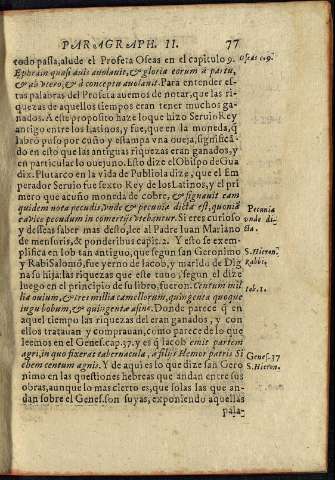 PARAGRAPH. II. 77
todo passa, alude el Profeta Oseas en el capitulo 9. Oseas c.9.
Ephrain quasi auis auolauit, & gloria eorum à partu,
& ab vtero, & à conceptu auolauit. Para entender es-
tas palabras del Profeta auemos de notar, que las ri-
quezas de aquellos tiempos eran tener muchos ga-
nados. A este proposito haze lo que hizo Seruio Rey
antigo entre los Latinos, y fue, que en la moneda, q̃
labrò puso por cuño y estampa vna oueja, significã-
do en esto que las antiguas riquezas eran ganados, y
en particular lo ouejuno. Esto dize el Obispo de Gua
dix. Plutarco en la vida de Publiola dize, que el Em
perador Seruio fue sexto Rey de los Latinos, y el pri
mero que acuño moneda de cobre, & signauit eam
quidem nota pecudis, vnde & pecunia dicta est, quoniã Pecunia
ea vice pecudum in comertijs vtebantur. Si eres curioso onde di-
y desseas saber mas desto, lee al Padre Iuan Mariano cta.
de mensoris, & ponderibus capit. 2. Y esto se exem-
plifica en Iob tan antiguo, que segun san Geronimo S. Hieron.
y Rabi Salomõ, fue yerno de Iacob, y marido de Dig Rabbi.
na su hija: las riquezas que este tuuo, segun el dize
luego en el principio de su libro, fueron. Centum mil
lia ouium, & tres millia camellorum, quingenta quoque Iob. 1.
iuga bobum, & quingentæ asinæ. Donde parece q̃ en
aquel tiempo las riquezas del eran ganados, y con
ellos tratauan y comprauan, como parece de lo que
leemos en el Genes. cap. 37. y es q̃ Iacob emit partem
agri, in quo fixerat tabernacula, à filijs Hemor patris Si Genes. 37
chem centum agnis. Y de aqui es lo que dize san Gero S. Hieron.
nimo en las questiones hebreas que andan entre sus
obras, aunque lo mas cierto es, que solas las que an-
dan sobre el Genes. son suyas, exponiendo aquellas
pala-